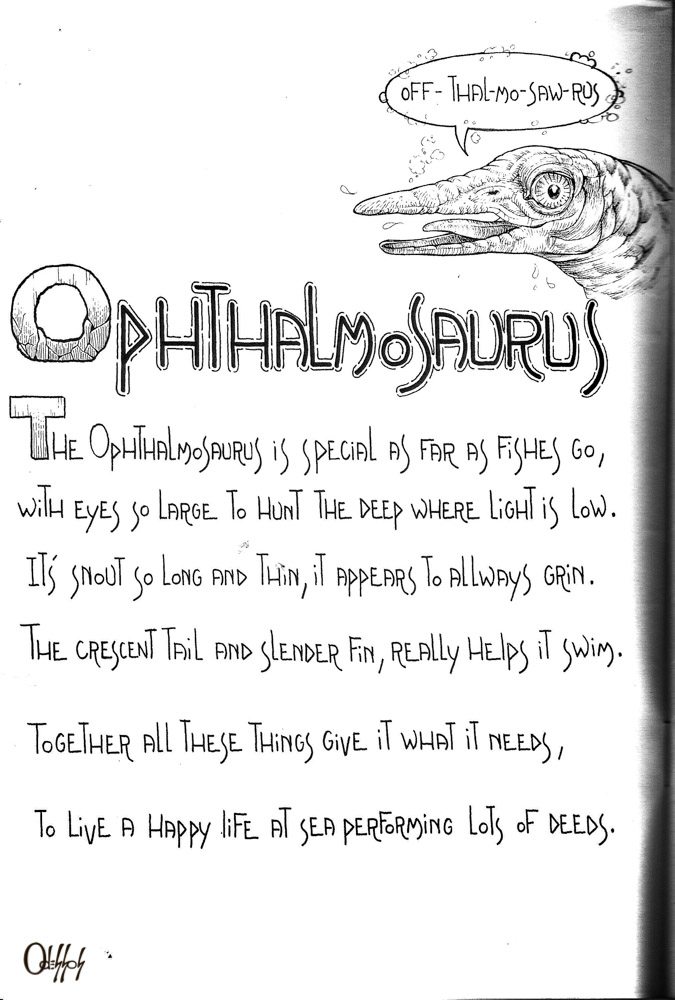 OFF-THAL-MO-SAW-RUS
OPHTHALMOSAURUS
THE OPHTHALMOSAURUS IS SPECIAL AS FAR AS FISHES GO,
WITH EYES SO LARGE TO HUNT THE DEEP WHERE LIGHT IS LOW.
IT'S SNOUT SO LONG AND THIN, IT APPEARS TO ALLWAYS GRIN.
THE CRESCENT TAIL AND SLENDER FIN, REALLY HELPS IT SWIM.
TOGETHER ALL THESE THINGS GIVE IT WHAT IT NEEDS,
TO LIVE A HAPPY LIFE AT SEA PERFORMING LOTS OF DEEDS.